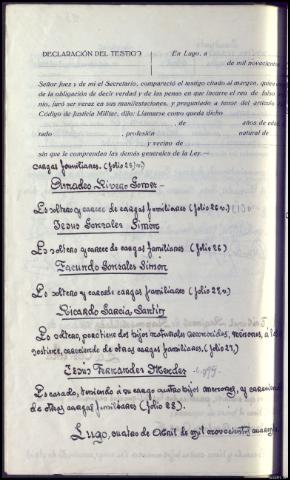 DECLARACIÓN DEL TESTIGO
En Lugo, a
de mil novecientos
Señor Juez y de mí el Secretario, compareció el testigo citado al margen, quien
de la obligación de decir verdad y de las penas en que incurre el reo de falso
nio, juró ser veraz en sus manifestaciones, y preguntado a tenor del artículo
Código de Justicia Militar, dijo: Llamarse como queda dicho
, de años de edad
rado , profesión natural de
y vecino de
sin que le comprendan las demás generales de la Ley.—
cargas familiares. (folio
Amadeo Rivero Gomez -
Es soltero y carece de cargas familiares (folio 26 v.)
Jesus Gonzales Simon
Es soltero y carece de cargas familiares (folio 26)
Facundo Gonzales Simon
Es soltero y carece de cargas familiares (folio
Ricardo Garcia Santin
Es soltero, hijos naturales reconocidos, menores, a
careciendo de otras cargas familiares. (folio 27)
Jesus Fernandez Mendez
Es casado, teniendo á su cargo cuatro hijos menores, y careciendo
de otras cargas familiares (folio 28).
Lugo, cuatro de Abril de mil novecientos